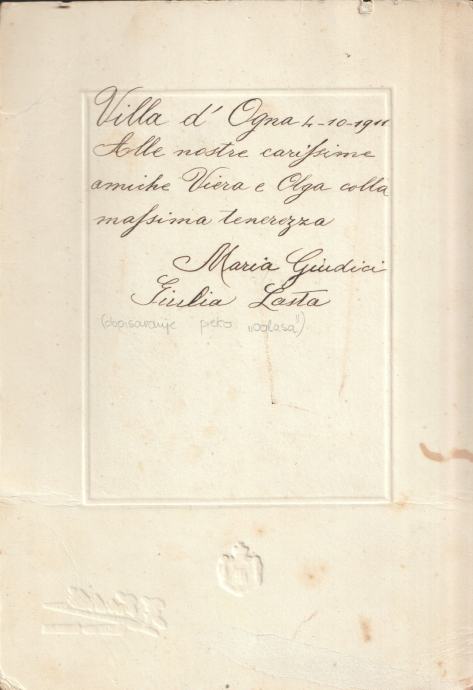 Villa d' Ogna 4-10-1911
Alle nostre carissime
amiche Viera e Olga colla
massima tenerozza
Maria Giudici
Giulia Lasta
(dopisovanje preko "oglasa")